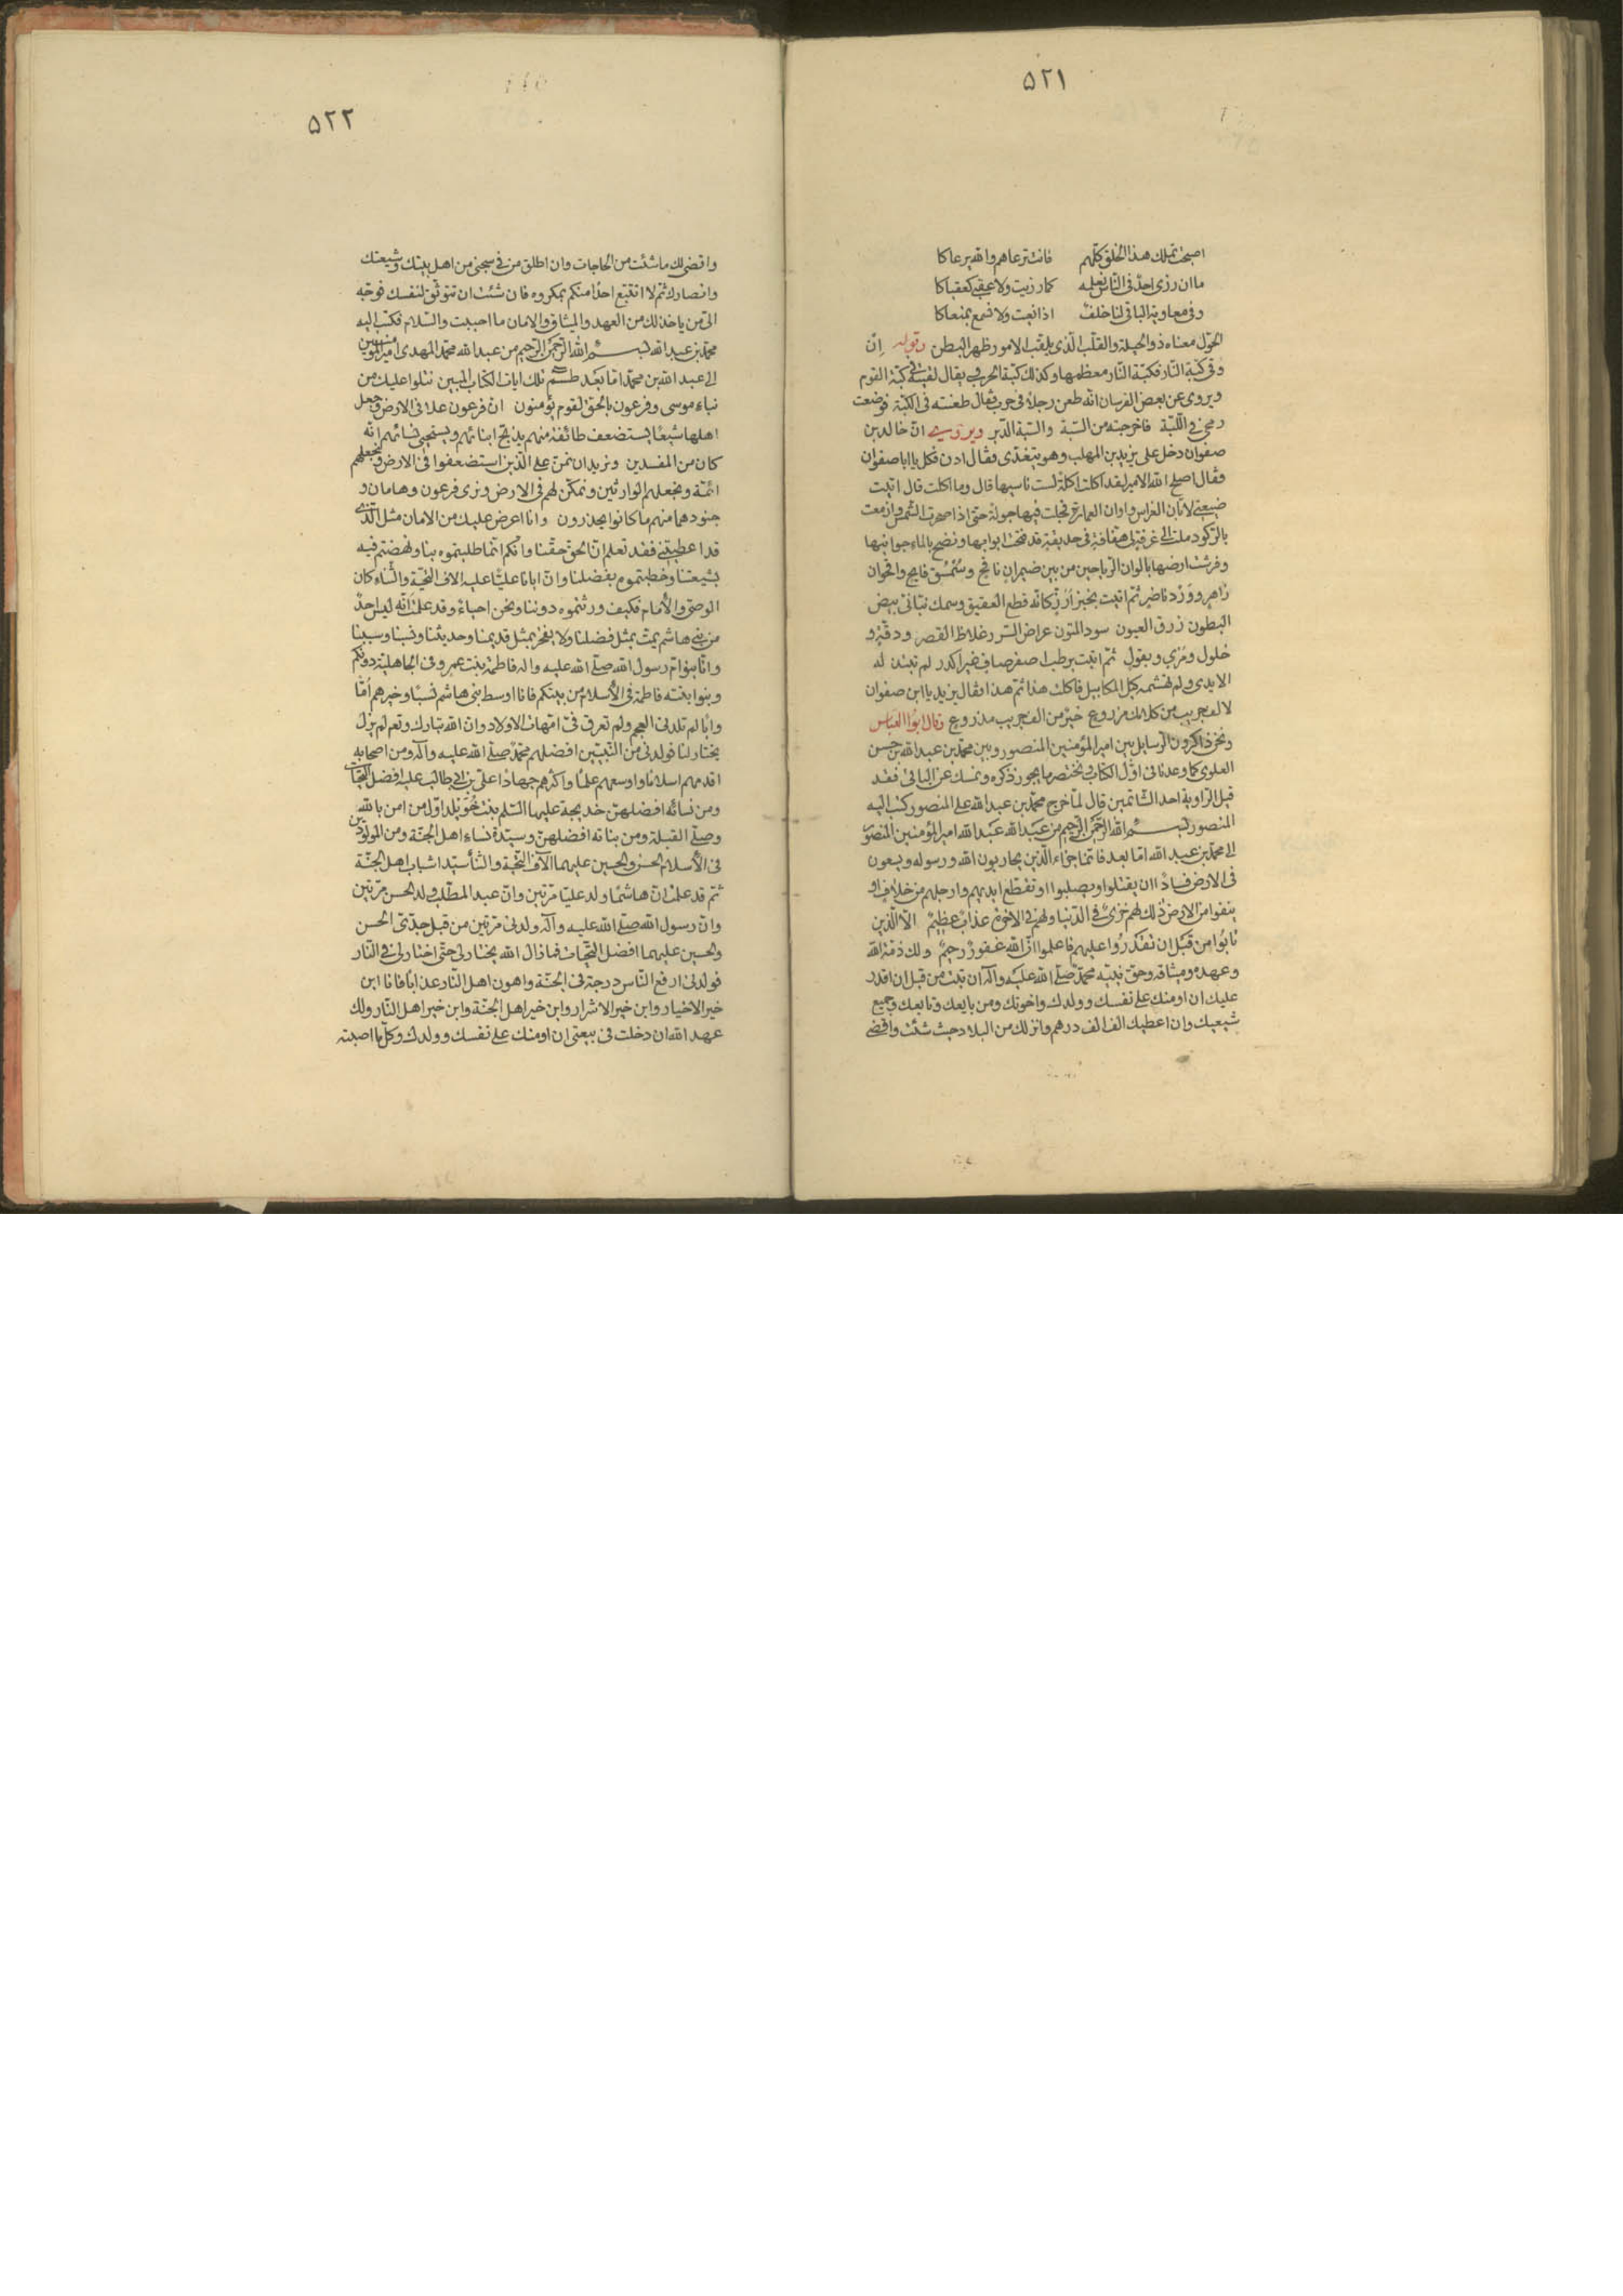 ٥٢١
اصبحت تملك هذا الخلق كلّهم فانت ترعاهم والله يرعاكا
ما ان رزى احدٌ فى النّاس نعلمه كما رزيت ولا عقبى كعقباكا
وفى معاوية الباقى لنا خلفٌ اذا نعيت ولا نسمع بمنعاكا
الحوّل معناه ذو الحيلة والقلّب الّذى يقلّب الامور ظهر البطن وقوله اِن
وقى كبّة النّار فكبّة النّار معظمها وكذلك كبّة الحرب يقال لقيته فى كبّة القوم
ويروى عن بعض الفرسان انّه طعن رجلاً فى حرب فقال طعنته فى الكبّة فوضعت
رمحى فى اللّبّة فاخرجته من السّبّة والسّبة الدّبر ويروى انّ خالد بن
صفوان دخل على يزيد بن المهلب وهو يتغدّى فقال ادن فكل يا ابا صفوان
فقال اصلح الله الامير لقد اكلت اكلة لست ناسيها قال وما اكلت قال اتيت
ضيعتى لابّان الغراس واوان العمارة فجلت فيها جولة حتى اذا صحرت الشمس وازمعت
بالركود ملت الى غرفة لى هفّافة فى حديقة قد فتحت ابوابها ونضح بالماء جوانبها
وفرشت ارضها بالوان الرّياحين من بين ضيمران نافح وسمسق فايح واقحوان
زاهر وورد ناضر ثم اتيت بخبز ارزّ كانّه قطع العقيق وسمك بنّانى بيض
البطون زرق العيون سود المتون عراض السرر غلاظ القصر ودقّة و
خلول ومرى وبقول ثمّ اتيت برطب اصفر صاف غير اكدر لم تبتذله
الايدى ولم تهشمه كيل المكاييل فاكلت هذا ثم هذا فقال يزيد يا ابن صفوان
لالف جريب من كلامك مزروع خير من الف جريب مذروع وقال ابوا العبّاس
ونحن ذاكرون الرسايل بين امير المؤمنين المنصور وبين محمّد بن عبد الله بن حسن
العلوى كما وعدنا فى اوّل الكتاب ونختصر ما يجوز ذكره ونمسك عن الباقى فقد
قيل الرّاوية احد الشّاتمين قال لمّا خرج محمّد بن عبد الله على المنصور كتب اليه
المنصور بسم الله الرّحمن الرّحيم من عبد الله عبد الله امير المؤمنين المنصور
الى محمّد بن عبد الله امّا بعد فانّما جزاء الّذين يحاربون الله ورسوله ويسعون
فى الارض فساداً ان يقتّلوا او يصلبوا او تقطّع ايديهم وارجلهم من خلافٍ او
ينفوا من الارض ذلك لهم خزىٌ فى الدّنيا ولهم فى الاخرة عذابٌ عظيمٌ الّا الّذين
تابوا من قبل ان تقدروا عليهم فاعلموا انّ الله غفورٌ رحيمٌ ولك ذمّة الله
وعهده وميثاقه وحقّ نبيّه محمّد صلّى الله عليه وآله ان تبت من قبل ان اقدر
عليك ان اومنك على نفسك وولدك واخوتك ومن بايعك وتابعك وجميع
شيعتك وان اعطيك الف الف درهم وانزلك من البلاد حيث شئت واقضى
٥٢٢
واقضى لك ما شئت من الحاجات وان اطلق من فى سجنى من اهل بيتك وشيعتك
وانصارك ثم لا اتتبّع احداً منكم بمكروه فان شئت ان تتوثّق لنفسك فوجّه
الىّ من ياخذ لك من العهد والميثاق والامان ما احببت والسّلام فكتب اليه
محمّد بن عبد الله بسم الله الرّحمن الرّحيم من عبد الله محمّد المهدى امير المؤمنين
الى عبد الله بن محمّد امّا بعد طسم تلك ايات الكتاب المبين نتلوا عليك من
نباء موسى وفرعون بالحقّ لقوم يؤمنون انّ فرعون علا فى الارض وجعل
اهلها شيعاً يستضعف طائفة منهم يذبّح ابنائهم ويستحيى نسائهم انّه
كان من المفسدين ونريد ان نمنّ على الّذين استضعفوا فى الارض ونجعلهم
ائمّة ونجعلهم الوارثين ونمكّن لهم فى الارض ونرى فرعون وهامان و
جنودهما منهم ما كانوا يحذرون وانا اعرض عليك من الامان مثل الّذى
قد اعطيتنى فقد تعلم انّ الحقّ حقّنا وانّكم انّما طلبتموه بنا ونهضتم فيه
بشيعتنا وخطبتموه بفضلنا وانّ ابانا عليّاً عليه الاف التّحيّة والثّناء كان
الوصىّ والأمام فكيف ورثتموه دوننا ونحن احياءٌ وقد علمت انّه ليس احدٌ
من بنى هاشم يمتّ بمثل فضلنا ولا يفخر بمثل قديمنا وحديثنا ونسبنا وسببنا
وانّا بنو امّ رسول الله صلّى الله عليه واله فاطمة بنت عمرو فى الجاهليّة دونكم
وبنوا بنته فاطمة فى الأسلام من بينكم فانا اوسط بنى هاشم نسباً وخيرهم امّاً
واباً لم تلدنى العجم ولم تعرق فىّ امّهات الاولاد وانّ الله تبارك وتعالى لم يزل
يختار لنا فولدنى من النّبيّين افضلهم محمّد صلّى الله عليه وآله ومن اصحابه
اقدمهم اسلاماً واوسعهم علماً واكثرهم جهاداً على بن ابى طالب عليه افضل التحيات
ومن نسائه افضلهنّ خديجة عليها السّلم بنت خويلد اوّل من امن بالله
وصلّى القبلة ومن بناته افضلهنّ وسيّدة نساء اهل الجنّة ومن المولودين
فى الأسلام الحسن والحسين عليهما آلاف التّحيّة والثناء سيّدا شباب اهل الجنّة
ثمّ قد علمت انّ هاشماً ولد عليّا مرّتين وانّ عبد المطّلب ولد الحسن مرّتين
وانّ رسول الله صلّى الله عليه وآله ولدنى مرّتين من قبل جدّتىّ الحسن
والحسين عليهما افضل التّحيّات فما زال الله يختار لى حتّى اختار لى فى النّار
فولدنى ارفع النّاس درجة فى الجنّة واهون اهل النّار عذاباً فانا ابن
خير الاخيار وابن خير الاشرار وابن خير اهل الجنّة وابن خير اهل النّار ولك
عهد الله ان دخلت فى بيعتى ان اومنك على نفسك وولدك وكلّ ما اصبته